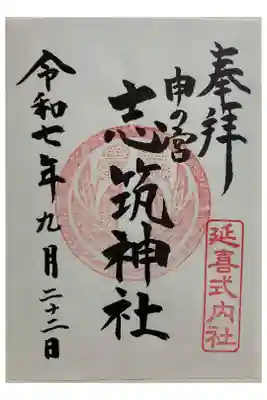 奉拝
延喜式内社
申の宮
志筑神社
令和七年九月二十二日